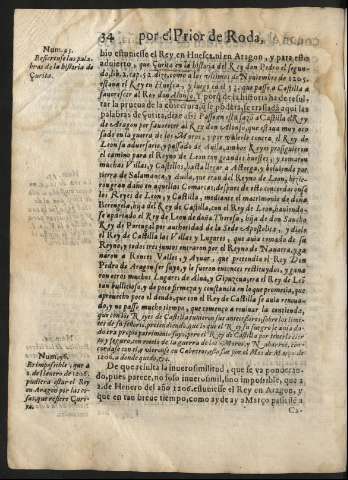 34 por el Prior de Roda,
Num. 25.
Refierense las palabras de la historia de Çurita.
bio estuuiesse el Rey en Huesca, ni en Aragon, y para esto
aduierto, que Çurita en la historia del Rey don Pedro el segundo,
lib. 2. cap. 52. dize, como a los vltimos de Nouiembre de 1205.
estaua el Rey en Huesca, y luego en el 53. que passo a Castilla a
fauorecer al Rey don Alonso. Y porq̃ de esta historia ha de resultar
la prueua de la coartada, q̃ se põdera, se traslada aqui las
palabras de Çurita, dize assi:
de Aragon por fauorecer al Rey don Alonso, que estaua muy
el Rey de
Leon su aduersario, y passado de Auila, ambos Reyes prosiguieron
el camino para el Reyno de Leon con grandes huestes, y tomaron
muchas Villas, y Castillos, hasta llegar a Astorga, y boluiendo por
tierra de Salamanca, y Auila, por estas del Reyno de Leon, hizieron
gran daño en aquellas Comarcas, despues de esto concordaronse
los Reyes de Leon, y Castilla, mediante el matrimonio de doña
Berengela, hija del Rey de Castilla, con el Rey de Leon, hauiendose
apartado el Rey de Leon de doña Theresa, hija de don Sancho
Rey de Portugal por authoridad de la Sede Apostolica, y dexò
el Rey de Castilla las Villas y Lugares, que auia tomado de su
Reyno, y todos tres juntos entraron por el Reyno de Nauarra, y ganaron
a Roncal Valles, y Aynar, que pretendia el Rey Don
Pedro de Aragon ser suyo, y le fueron entonces restituydos, y ganaron
otros muchos Lugares de Alaua, y Guipuzcua, era el Rey de Leõ
tan bullicioso, y de poca firmeza y constancia en lo que prometia, que
aprouecho poco el deudo, que con el Rey de Castilla se auia renouado,
y no passo mucho tiempo, que
que con los Reyes de Castilla tuuieron sus antecessores sobre los limites
de su señorio,
de la guerra de los Moros, y
Mes de Março de
1206.
Num. 26.
Es impossible, que a 2. de Enero de 1206. pudiera estar el Rey en Aragon por las cosas, que refiere Çurita.
De que resulta la inuerosimilitud, que se va ponderando,
pues parece, no solo inuerosimil, sino impossible, que a
2. de Henero del año 1206. estuuiesse el Rey en Aragon, y
que en tan breue tiempo, como ay de ay a Março passasse a
Ca-